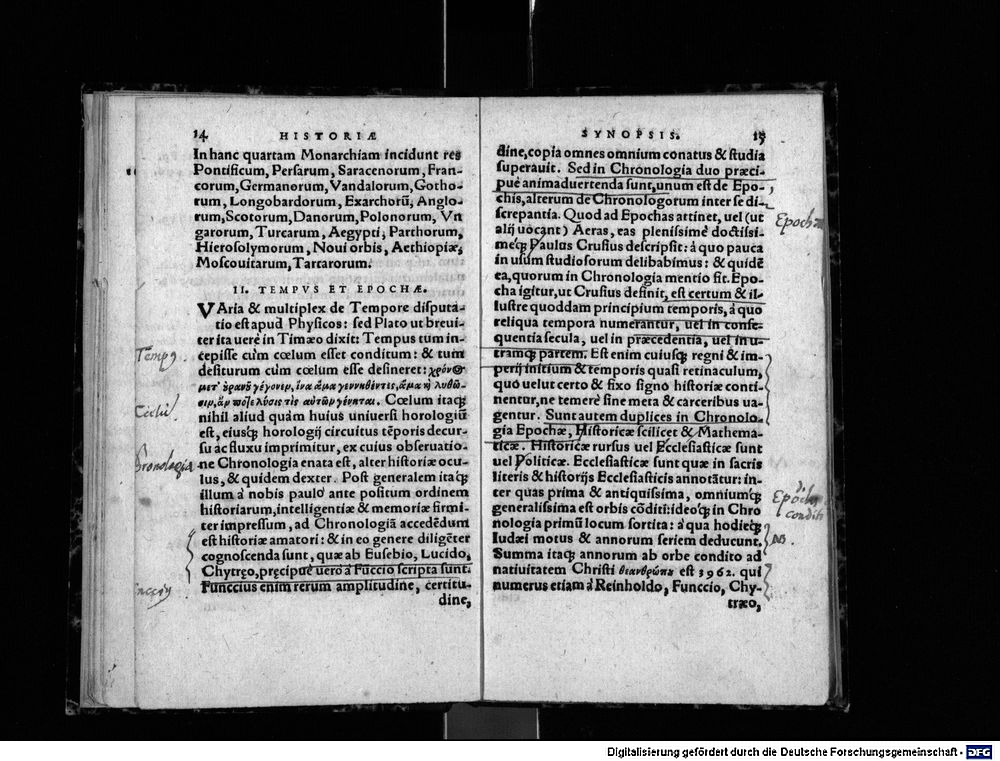 14 HISTORIÆ
In hanc quartam Monarchiam incidunt res
Pontificum, Persarum, Saracenorum, Fran-
corum, Germanorum, Vandalorum, Gotho-
rum, Longobardorum, Exarchorũ, Anglo-
rum, Scotorum, Danorum, Polonorum, Vn
garorum, Turcarum, Aegypti, Parthorum,
Hierosolymorum, Noui orbis, Aethiopiæ,
Moscouitarum, Tartarorum.
II. TEMPVS ET EPOCHÆ.
VAria & multiplex de Tempore disputa-
tio est apud Physicos: sed Plato ut breui-
ter ita uerè in Timæo dixit: Tempus tum in-
cepisse cùm cœlum esset conditum: & tum
desiturum cùm cœlum esse desineret: χρόνος
μετ' ὐρανȣ̃ γέγονεν, ἵνα ἅμα γεννηθέντες, ἅμα κỳ λυθῶ-
σιν, ἄν ποτε λύσις τὶς αὐτῶν γένηται. Cœlum itaq;
nihil aliud quàm huius uniuersi horologiũ
est, eiusq; horologij circuitus tẽporis decur-
su ac fluxu imprimitur, ex cuius obseruatio-
ne Chronologia enata est, alter historiæ ocu-
lus, & quidem dexter. Post generalem itaq;
illum à nobis paulò ante positum ordinem
historiarum, intelligentiæ & memoriæ firmi-
ter impressum, ad Chronologiã accedẽdum
est historiæ amatori: & in eo genere diligẽter
cognoscenda sunt, quæ ab Eusebio, Lucido,
Chytręo, pręcipuè uerò à Fūccio scripta sunt.
Funccius enim rerum amplitudine, certitu-
dine,
Tempq
Cœlũ
Chronologia
SYNOPSIS. 15
dine, copia omnes omnium conatus & studia
superauit. Sed in Chronologia duo præci-
puè animaduertenda sunt, unum est de Epo-
chis, alterum de Chronologorum inter se di-
screpantia. Quod ad Epochas attinet, uel (ut
alij uocant) Aeras, eas plenissimè doctissi-
meq; Paulus Crusius descripsit: à quo pauca
in usum studiosorum delibabimus: & quidẽ
ea, quorum in Chronologia mentio fit. Epo-
cha igitur, ut Crusius definit, est certum & il-
lustre quoddam principium temporis, à quo
reliqua tempora numerantur, uel in conse-
quentia secula, uel in præcedentia, uel in u-
tramq; partem. Est enim cuiusq; regni & im-
perij initium & temporis quasi retinaculum,
quo uelut certo & fixo signo historiæ conti-
nentur, ne temerè sine meta & carceribus ua-
gentur. Sunt autem duplices in Chronolo-
gia Epochæ, Historicæ scilicet & Mathema-
ticæ. Historicæ rursus uel Ecclesiasticæ sunt
uel Politicæ. Ecclesiasticæ sunt quæ in sacris
literis & historijs Ecclesiasticis annotãtur: in-
ter quas prima & antiquissima, omniumq;
generalissima est orbis cõditi: ideoq; in Chro
nologia primũ locum sortita: à qua hodieq;
Iudæi motus & annorum seriem deducunt.
Summa itaq; annorum ab orbe condito ad
natiuitatem Christi θεανθρώπȣ est 3962. qui
numerus etiam à Reinholdo, Funccio, Chy-
træo,
Epocha
Epocha
conditi
Digitalisierung gefördert durch die Deutsche Forschungsgemeinschaft - DFG